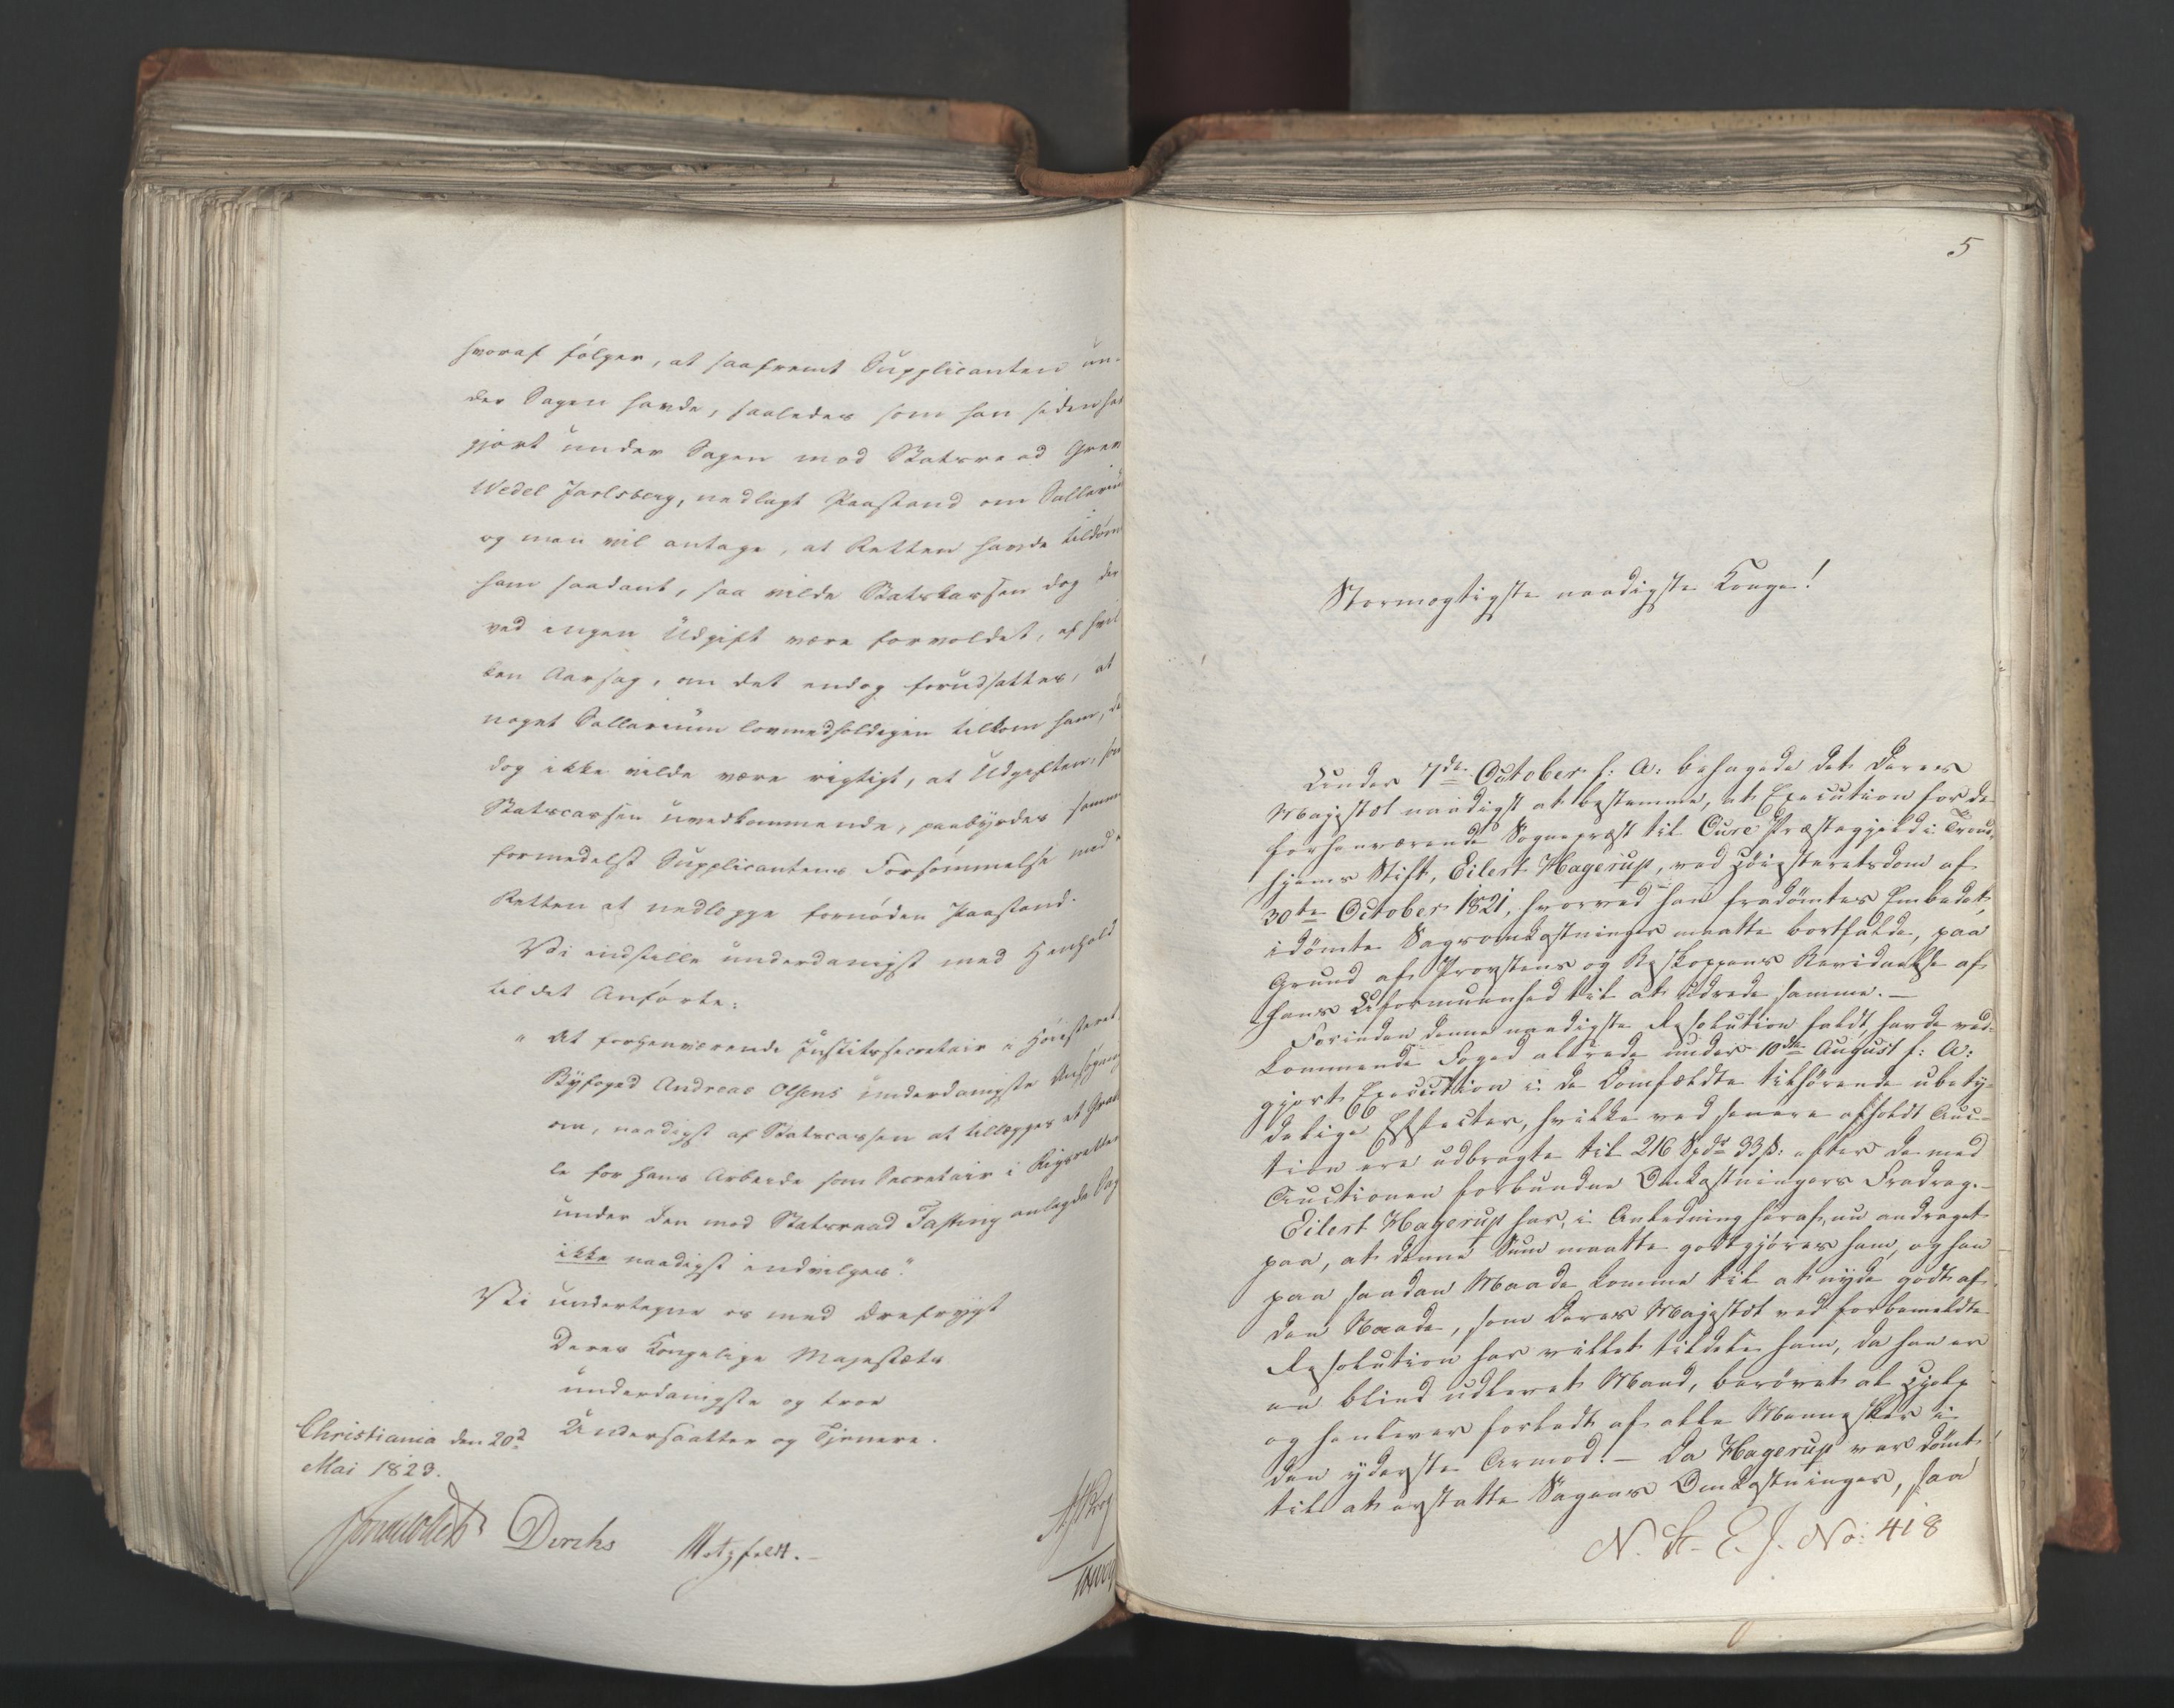 hvoraf følger, at saafremt Supplicanten un-
der Sagen havde, saaledes som han siden har
gjort under Sagen mod Statsraad Grev
Wedel Jarlsberg, nedlagt Paastand om Sallarium
og man vil antage, at Retten havde tildømt
ham saadant, saa vilde Statskassen dog der
ved ingen Udgift være forvoldet, af hvil
ken Aarsag, om det endog forudsattes, at
noget Sallarium lovmedholdigen tilkom ham, det
dog ikke vilde være rigtigt, at Udgiften, som
Statscassen uvedkommende, paabyrdes samme
formedelst Supplicantens Forsømmelse med i
Retten at nedlægge fornøden Paastand.
Vi indstille underdanigst med Henhold
til det Anførte:
" At forhenværende Justitssecretair i Høiesteret
Byfoged Andreas Olsens underdanigste Ansøgning
om, naadigst af Statscassen at tillægges et Gra
le for hans Arbeide som Secretair i Rigsretten
under den mod Statsraad Fasting anlagde Sag
ikke naadigst indvilges."
Vi undertegne os med Ærefrygt
Deres Kongelige Majestæts
underdanigste og troe
Undersaatter og Tjenere.
Christiania den 20d
Mai 1823.
Sommerhielm Diriks Motzfeldt.
5
Stormægtigste naadigste Konge!
Under 7de October f: A: behagede det Deres
Majestæt naadigst at bestemme, at Execution for de
forhenværende Sognepræst til Oure Præstegjeld i Trond-
hjems Stift, Eilert Hagerup, ved Høiesteretsdom af
30te October 1821, hvorved han fradømtes Embedet,
idømte Sagsomkostninger maatte bortfalde, paa
Grund af Provstens og Biskoppens Bevidnelse af
hans Uformuenhed til at udrede samme. —
Forinden denne naadigste Resolution faldt, havde ved-
kommende Foged allerede under 10de August f: A:
gjort Execution i de Domfældte tilhørende ubety-
delige Effecter, hvilke ved senere afholdt Auc-
tion ere udbragte til 216 Spdr 33 ß: efter de med
Auctionen forbundne Omkostningers Fradrag. -
Eilert Hagerup har, i Anledning heraf, nu andraget
paa, at denne Sum maatte godtgjøres ham, og han
paa saadan Maade komme til at nyde godt af
den Naade, som Deres Majestæt ved forbemeldte
Resolution har villet tildele ham, da han er
en blind udlevet Mand, berøvet al Hjelp
og henlever forladt af alle Mennesker i
den yderste Armod. — Da Hagerup var dømt
til at erstatte Sagens Omkostninger, saa
N. St. E. J. No: 418